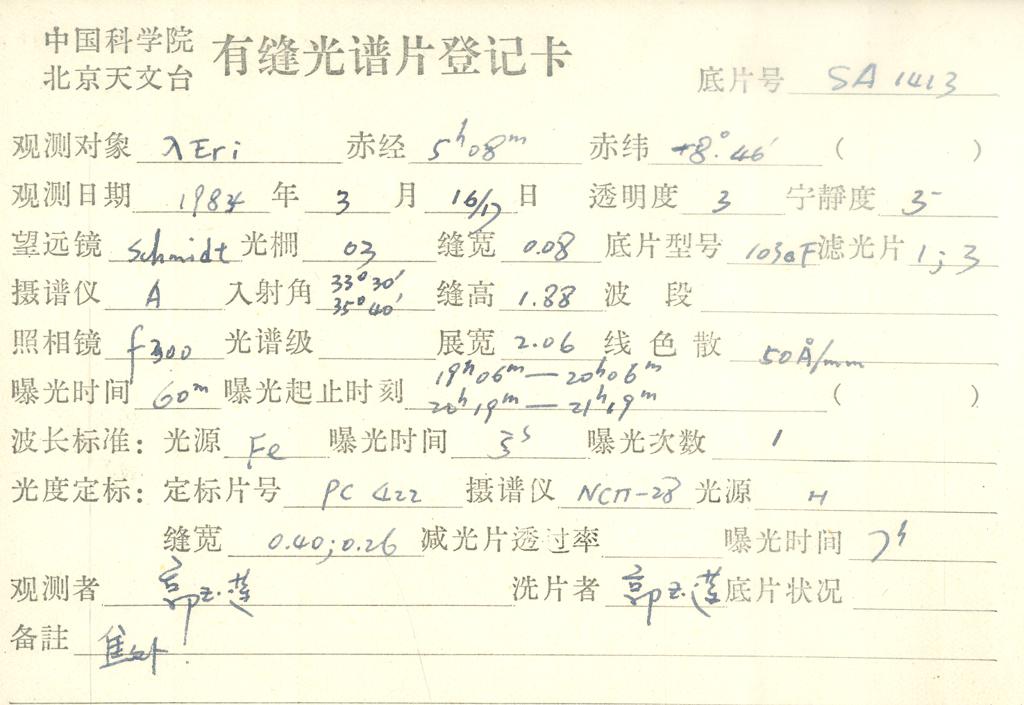 中国科学院
北京天文台
有缝光谱片登记卡
底片号 SA 1413
观测对象 λEri 赤经 5ʰ08ᵐ 赤纬 +8°46′ ( )
观测日期 1984 年 3 月 16/17 日 透明度 3 宁静度 5
望远镜 Schmidt 光栅 03 缝宽 0.08 底片型号 103aF 滤光片 1;3
摄谱仪 A 入射角 33°30′ 35°40′ 缝高 1.88 波段
照相镜 f300 光谱级 展宽 2.06 线色散 50Å/mm
曝光时间 60ᵐ 曝光起止时刻 19ʰ06ᵐ—20ʰ06ᵐ
20ʰ19ᵐ—21ʰ19ᵐ ( )
波长标准: 光源 Fe 曝光时间 3ˢ 曝光次数 1
光度定标: 定标片号 PC 422 摄谱仪 ИСП-28 光源 H
缝宽 0.40;0.26 减光片透过率 曝光时间 7ˢ
观测者 郭玉莲 洗片者 郭玉莲 底片状况
备註 焦外